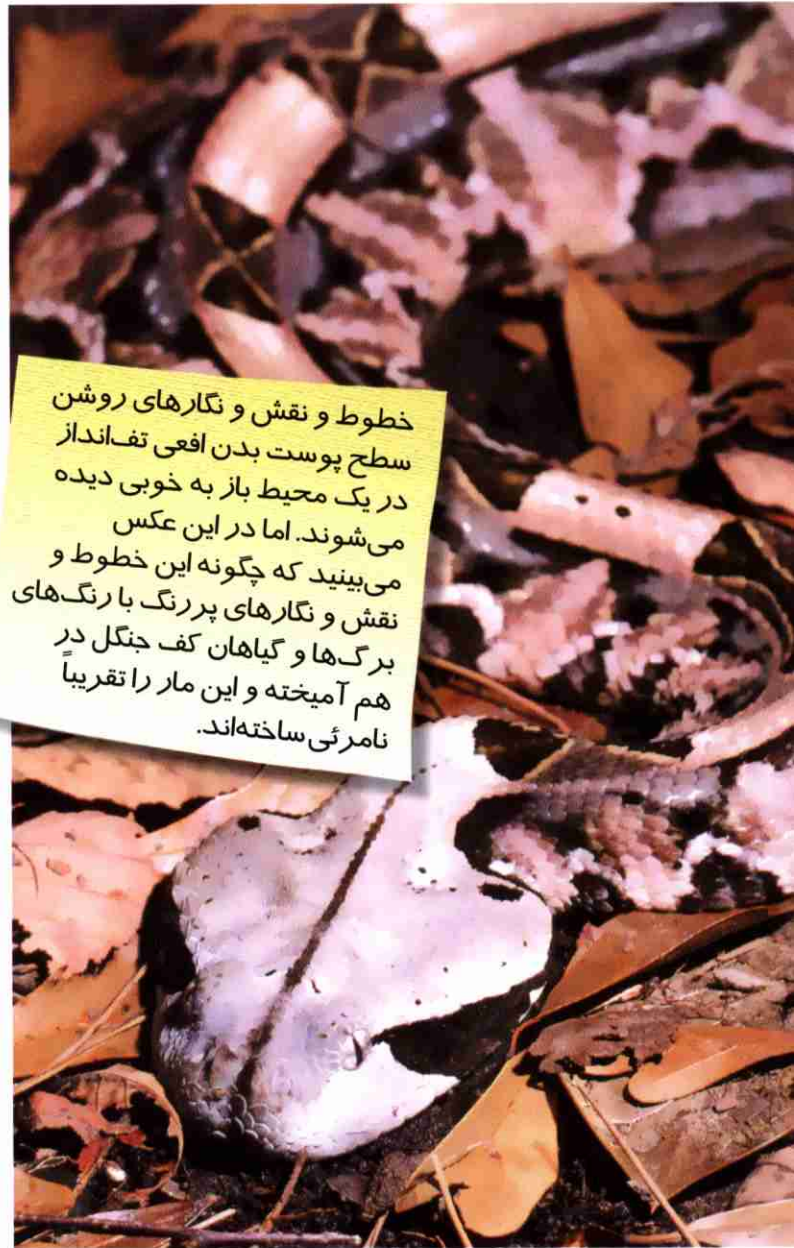 خطوط و نقش و نگارهای روشن
سطح پوست بدن افعی تف‌انداز
در یک محیط باز به خوبی دیده
می‌شوند. اما در این عکس
می‌بینید که چگونه این خطوط و
نقش و نگارهای پررنگ با رنگ‌های
برگ‌ها و گیاهان کف جنگل در
هم آمیخته و این مار را تقریباً
نامرئی ساخته‌اند.